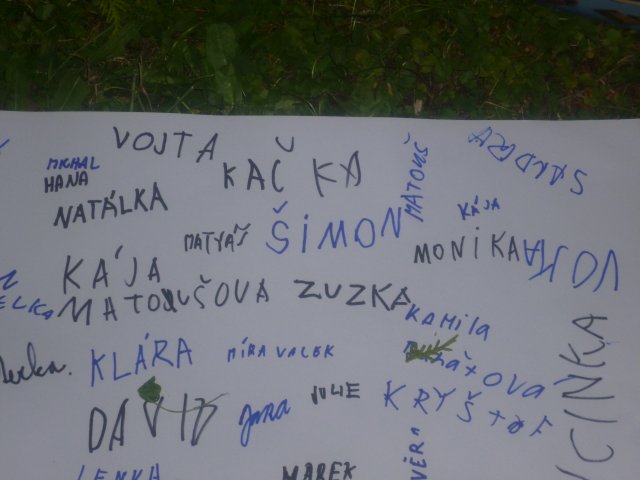 VOJTA
MICHAL
HANA
KAČKA
MATOUŠ
SANDRA
NATÁLKA
KÁJA
MATYÁŠ
ŠIMON
MONIKA
VOJKA
KÁJA
ELKA
MATOUŠOVA
ZUZKA
KAMILA
KLÁRA
MÍRA VALEK
CINKA
DAVID
Jana
JULIE
KRYŠTOF
VĚRA
LENKA
MAREK